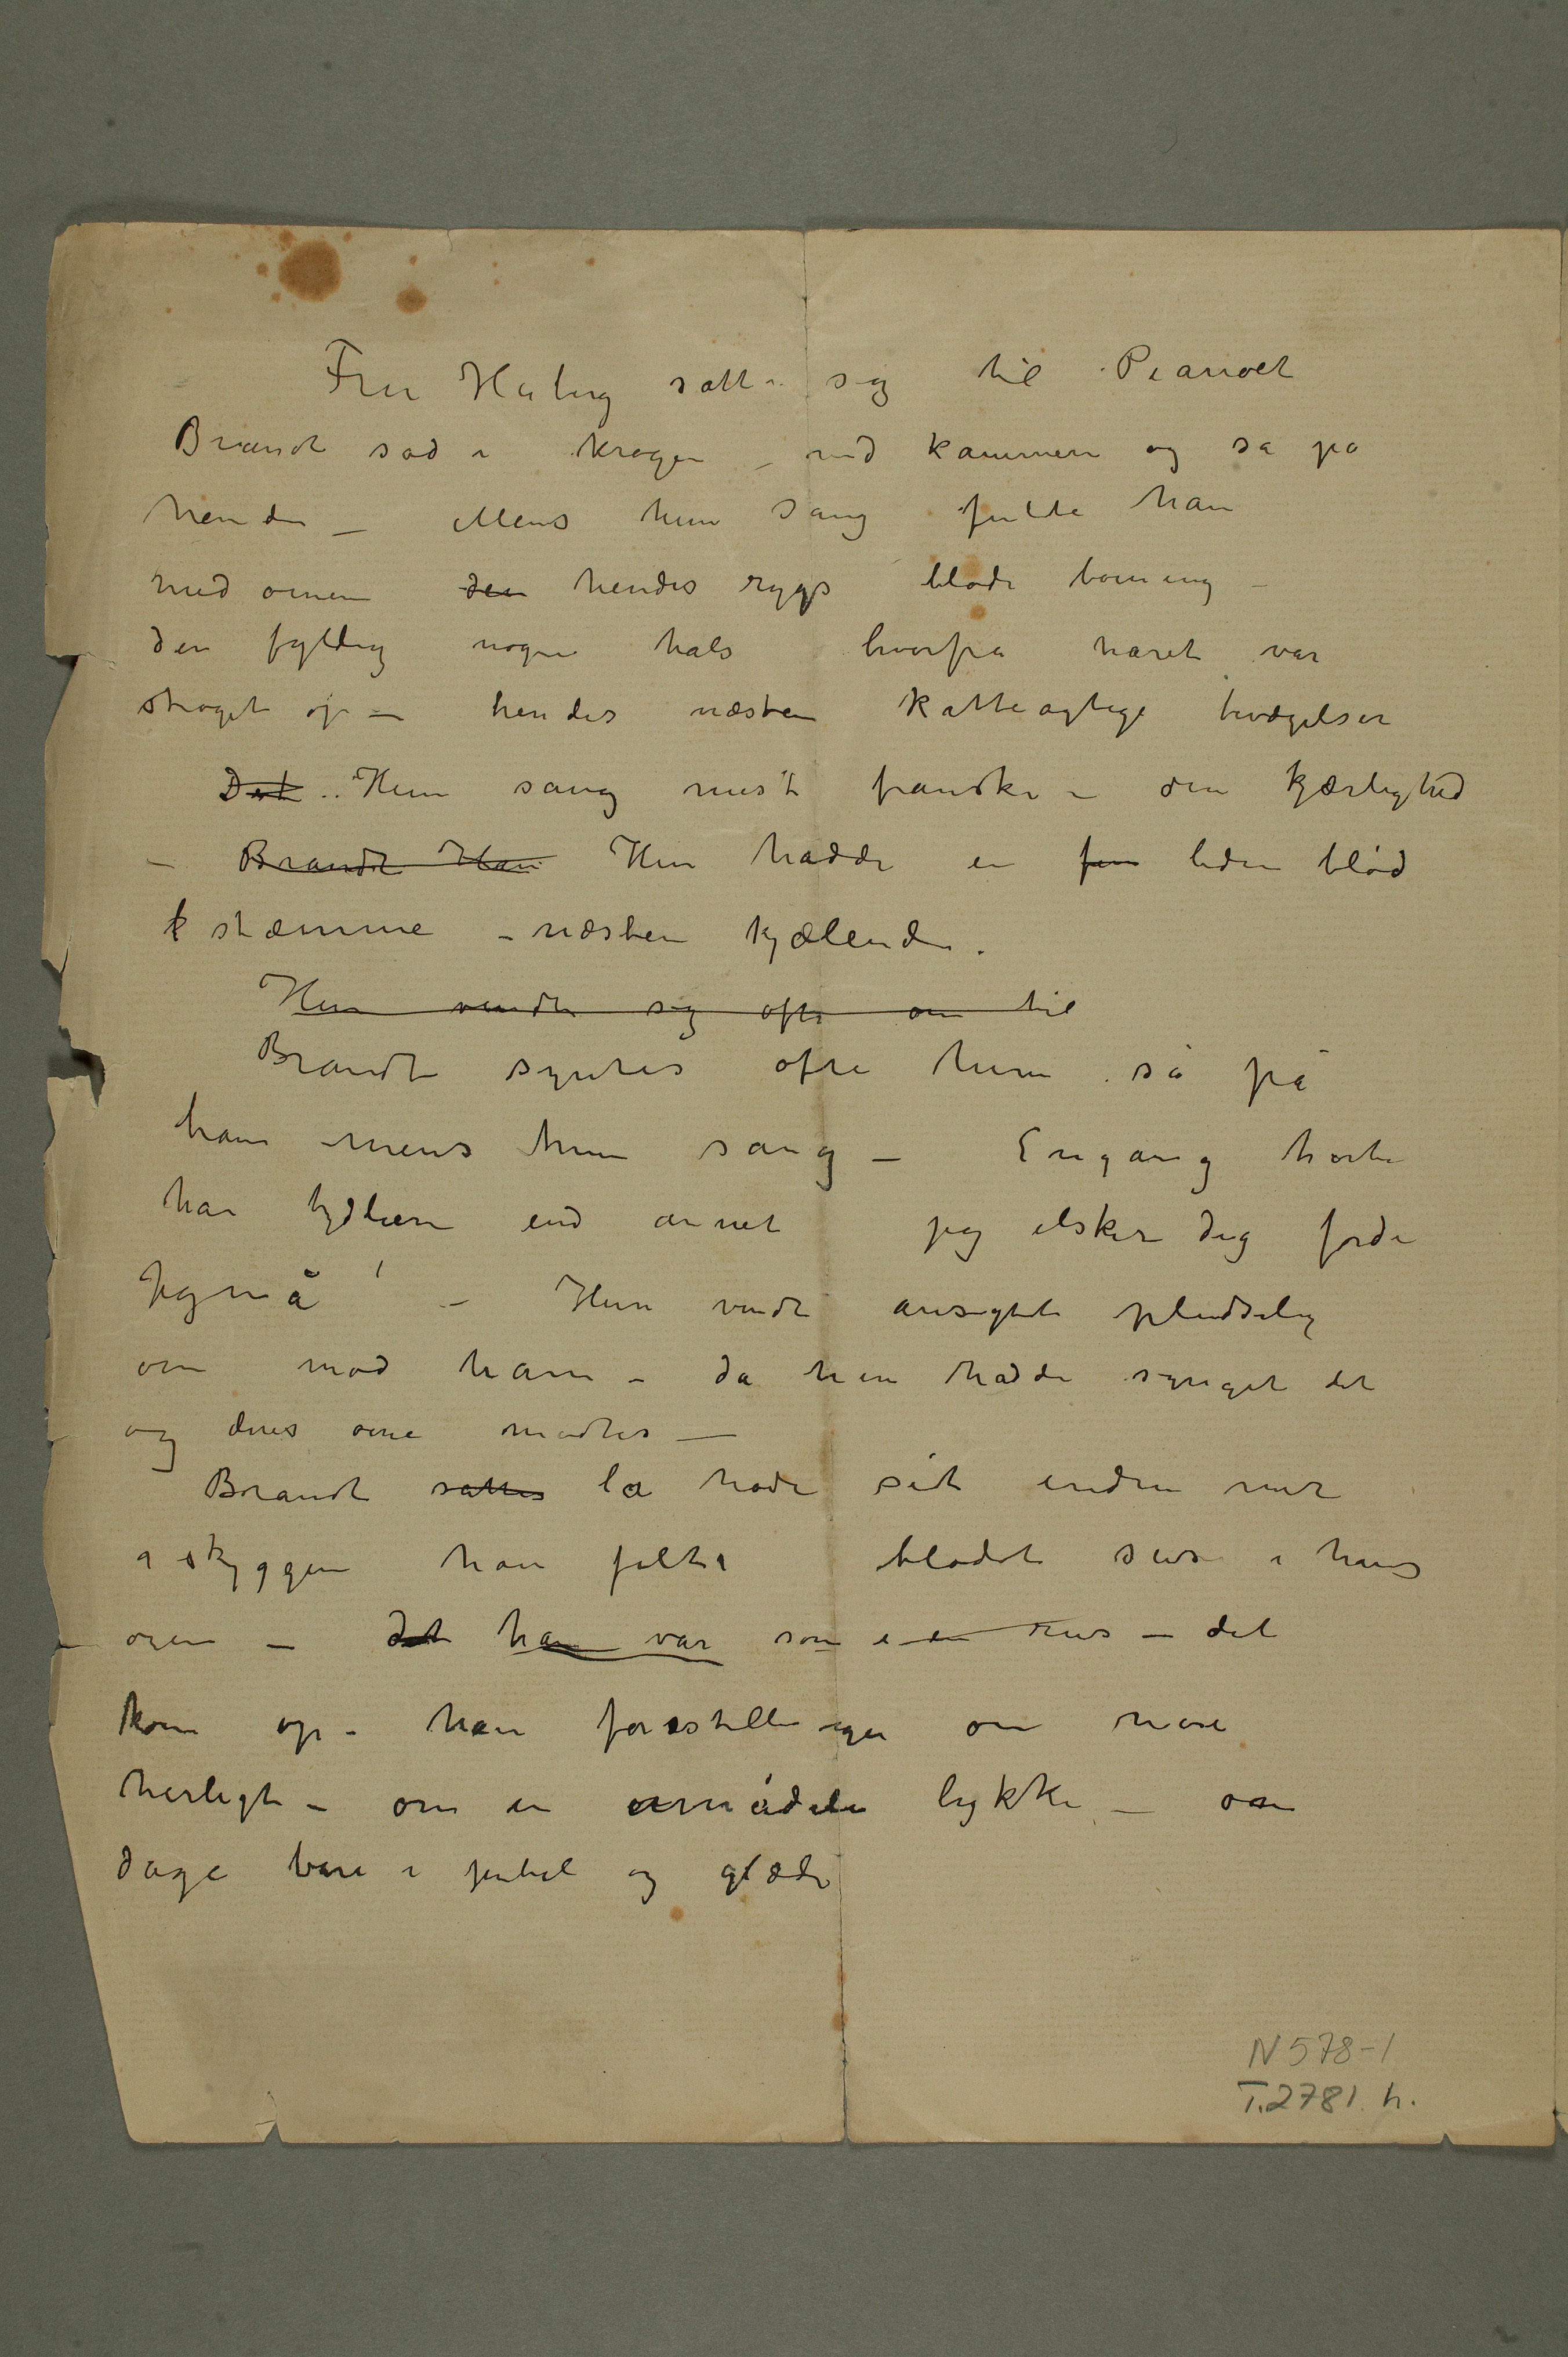 Fru Heiberg satte sig til Pianoet
Brandt sad i krogen – ved kaminen og så på
hende – Mens hun sang fulte han
med øinene den hendes rygs bløde böining –
den fyldig nøgne hals hvorfra håret var
strøget op – hendes næsten katteagtige bevægelser
Det Hun sang mest franske – om kjærlighed
– Brandt Han Hun hadde en fin liden blød
k stæmme – næsten kjælende.
Hun vendte sig ofte om til
Brandt syntes ofte hun så på
ham mens hun sang – Engang hørte
han tydligere end annet jeg elsker dig fordi
Jeg må! – Hun vendte ansigtet pludselig
om mod ham – da hun hadde synget det
og deres øine mødtes –
Brandt sattes la hodet sit endnu mer
i skyggen han følte blodet suse i hans
øren – det han var som i en rus – det
kom op – han forestillinger om noe
herligt – om en umådeli lykke – om
dage bare i jubel og glæde
N 578-1
T.2781. h.